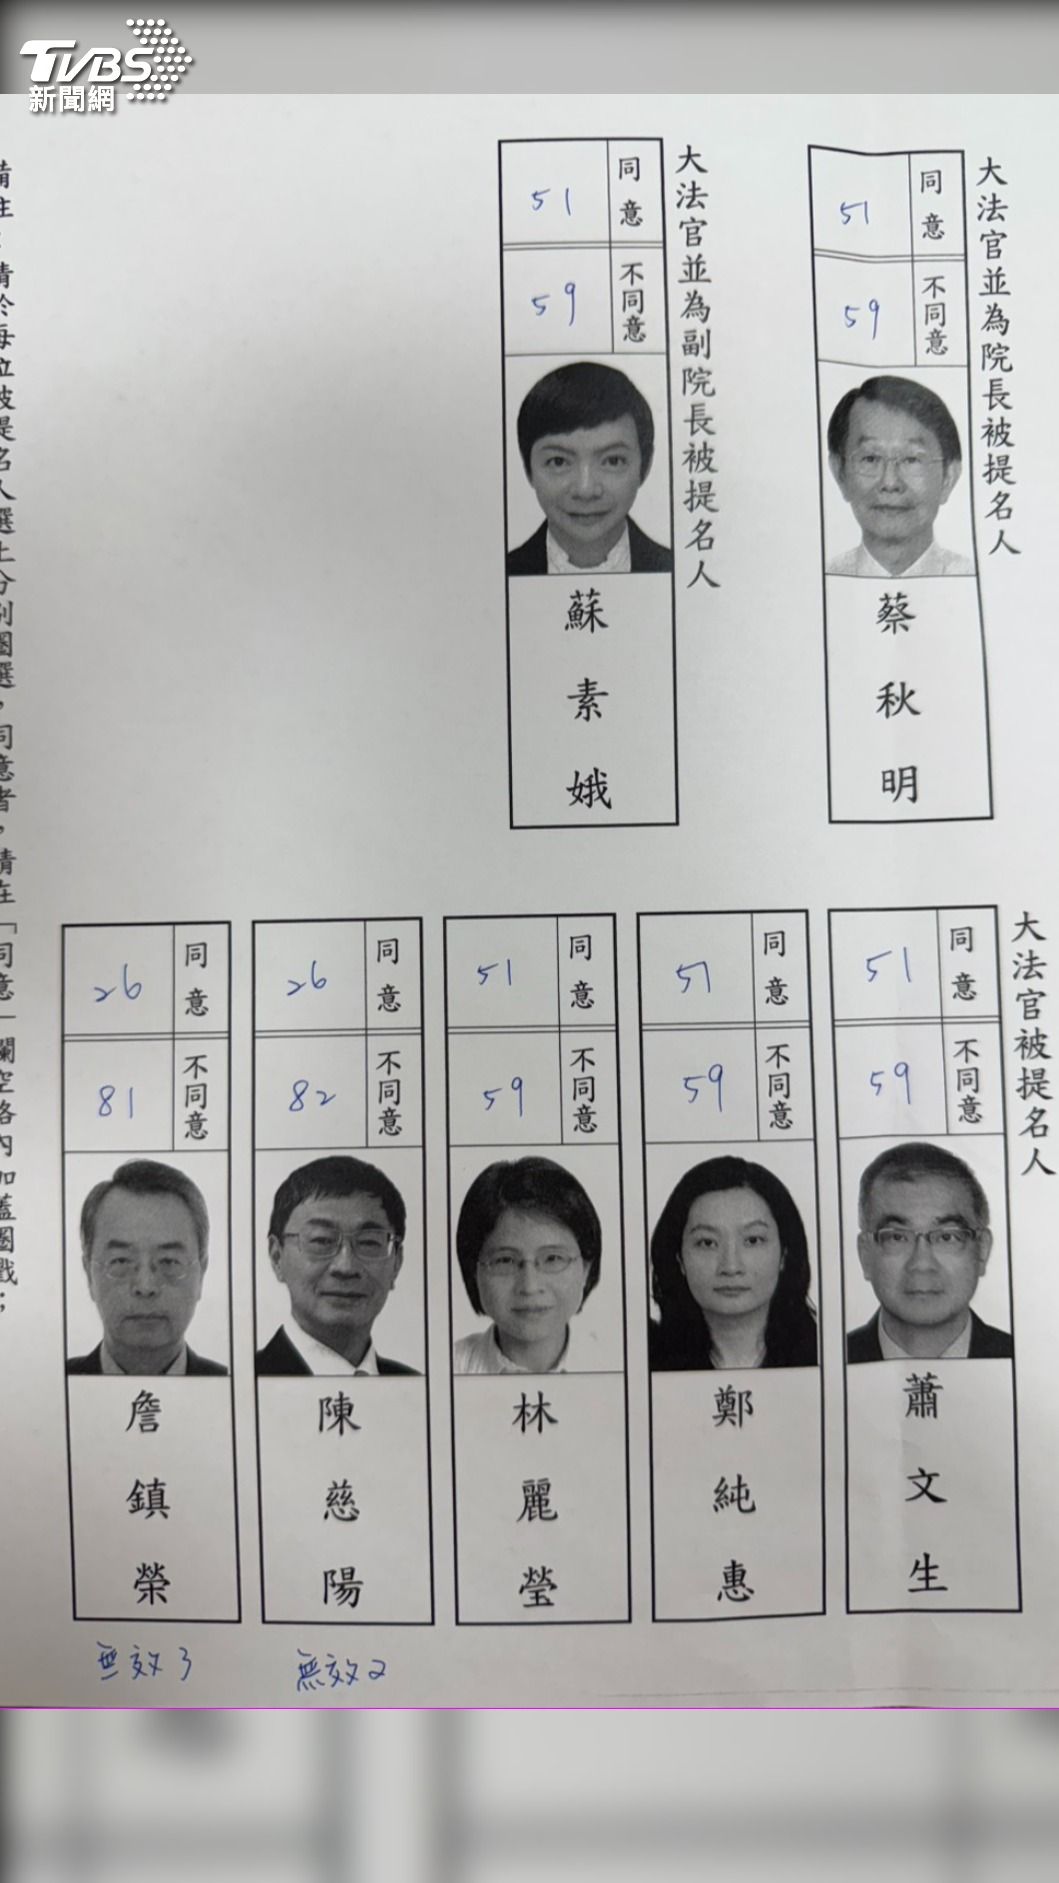 TVBS
新聞網
大法官並為院長被提名人
同意
51
不同意
59
蔡秋明
大法官並為副院長被提名人
同意
51
不同意
59
蘇素娥
大法官被提名人
同意
51
不同意
59
蕭文生
同意
51
不同意
59
鄭純惠
同意
51
不同意
59
林麗瑩
同意
26
不同意
82
陳慈陽
無效2
同意
26
不同意
81
詹鎮榮
無效3
備註：請於每位被提名人選上分別圈選，同意者，請在「同意」欄空格內加蓋圈戳；